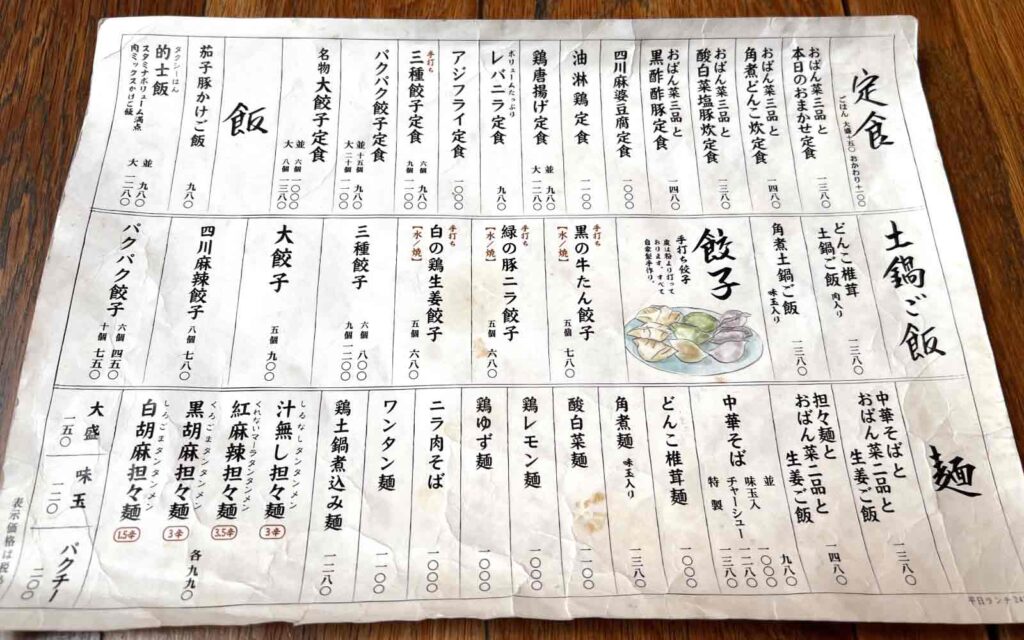 定食
ごはん 大盛+150 おかわり+100
おばん菜三品と
本日のおまかせ定食
一三八〇
おばん菜三品と
角煮どんこ炊定食
一四八〇
おばん菜三品と
酸白菜塩豚炊定食
一三八〇
おばん菜三品と
黒酢酢豚定食
一四八〇
四川麻婆豆腐定食
一〇〇〇
油淋鶏定食
一一〇〇
鶏唐揚げ定食
並 九八〇
大 一二八〇
ボリュームたっぷり
レバニラ定食
九八〇
アジフライ定食
一〇〇〇
手打ち
三種餃子定食
六個 九八〇
九個
パクパク餃子定食
並 十五個 九八〇
大 二十個 一一〇〇
名物 大餃子定食
並 六個 一〇〇〇
大 八個 一三八〇
飯
茄子豚かけご飯
九八〇
タクシーはん
的士飯
スタミナボリューム満点
肉ミックスかけご飯
並 九八〇
大 一二八〇
土鍋ご飯
どんこ椎茸
土鍋ご飯 肉入り
一三八〇
角煮土鍋ご飯 味玉入り
一三八〇
餃子
手打ち餃子
皮は粉より打って
おります。すべて
自家製手作り。
手打ち
黒の牛たん餃子
【水/焼】
五個 七八〇
手打ち
緑の豚ニラ餃子
【水/焼】
五個 六八〇
手打ち
白の鶏生姜餃子
【水/焼】
五個 六八〇
三種餃子
六個 八〇〇
九個 一二〇〇
大餃子
五個 九〇〇
四川麻辣餃子
八個 七八〇
パクパク餃子
六個 四五〇
十個 七五〇
麺
中華そばと
おばん菜二品と
生姜ご飯
一三八〇
担々麺と
おばん菜二品と
生姜ご飯
一四八〇
中華そば
並 九八〇
味玉入 一〇〇〇
チャーシュー 一二八〇
特製 一三八〇
どんこ椎茸麺
一〇〇〇
角煮麺 味玉入り
一三八〇
酸白菜麺
一一〇〇
鶏レモン麺
一〇〇〇
鶏ゆず麺
一〇〇〇
ニラ肉そば
一〇〇〇
ワンタン麺
一一〇〇
鶏土鍋煮込み麺
一二八〇
しるなしタンタンメン
汁無し担々麺
3辛
くれないマーラタンタンメン
紅麻辣担々麺
3.5辛
くろごまタンタンメン
黒胡麻担々麺
3辛
しろごまタンタンメン
白胡麻担々麺
1.5辛
各九九〇
大盛
一五〇
味玉
一二〇
パクチー
二〇〇
表示価格は税
平日ランチ24